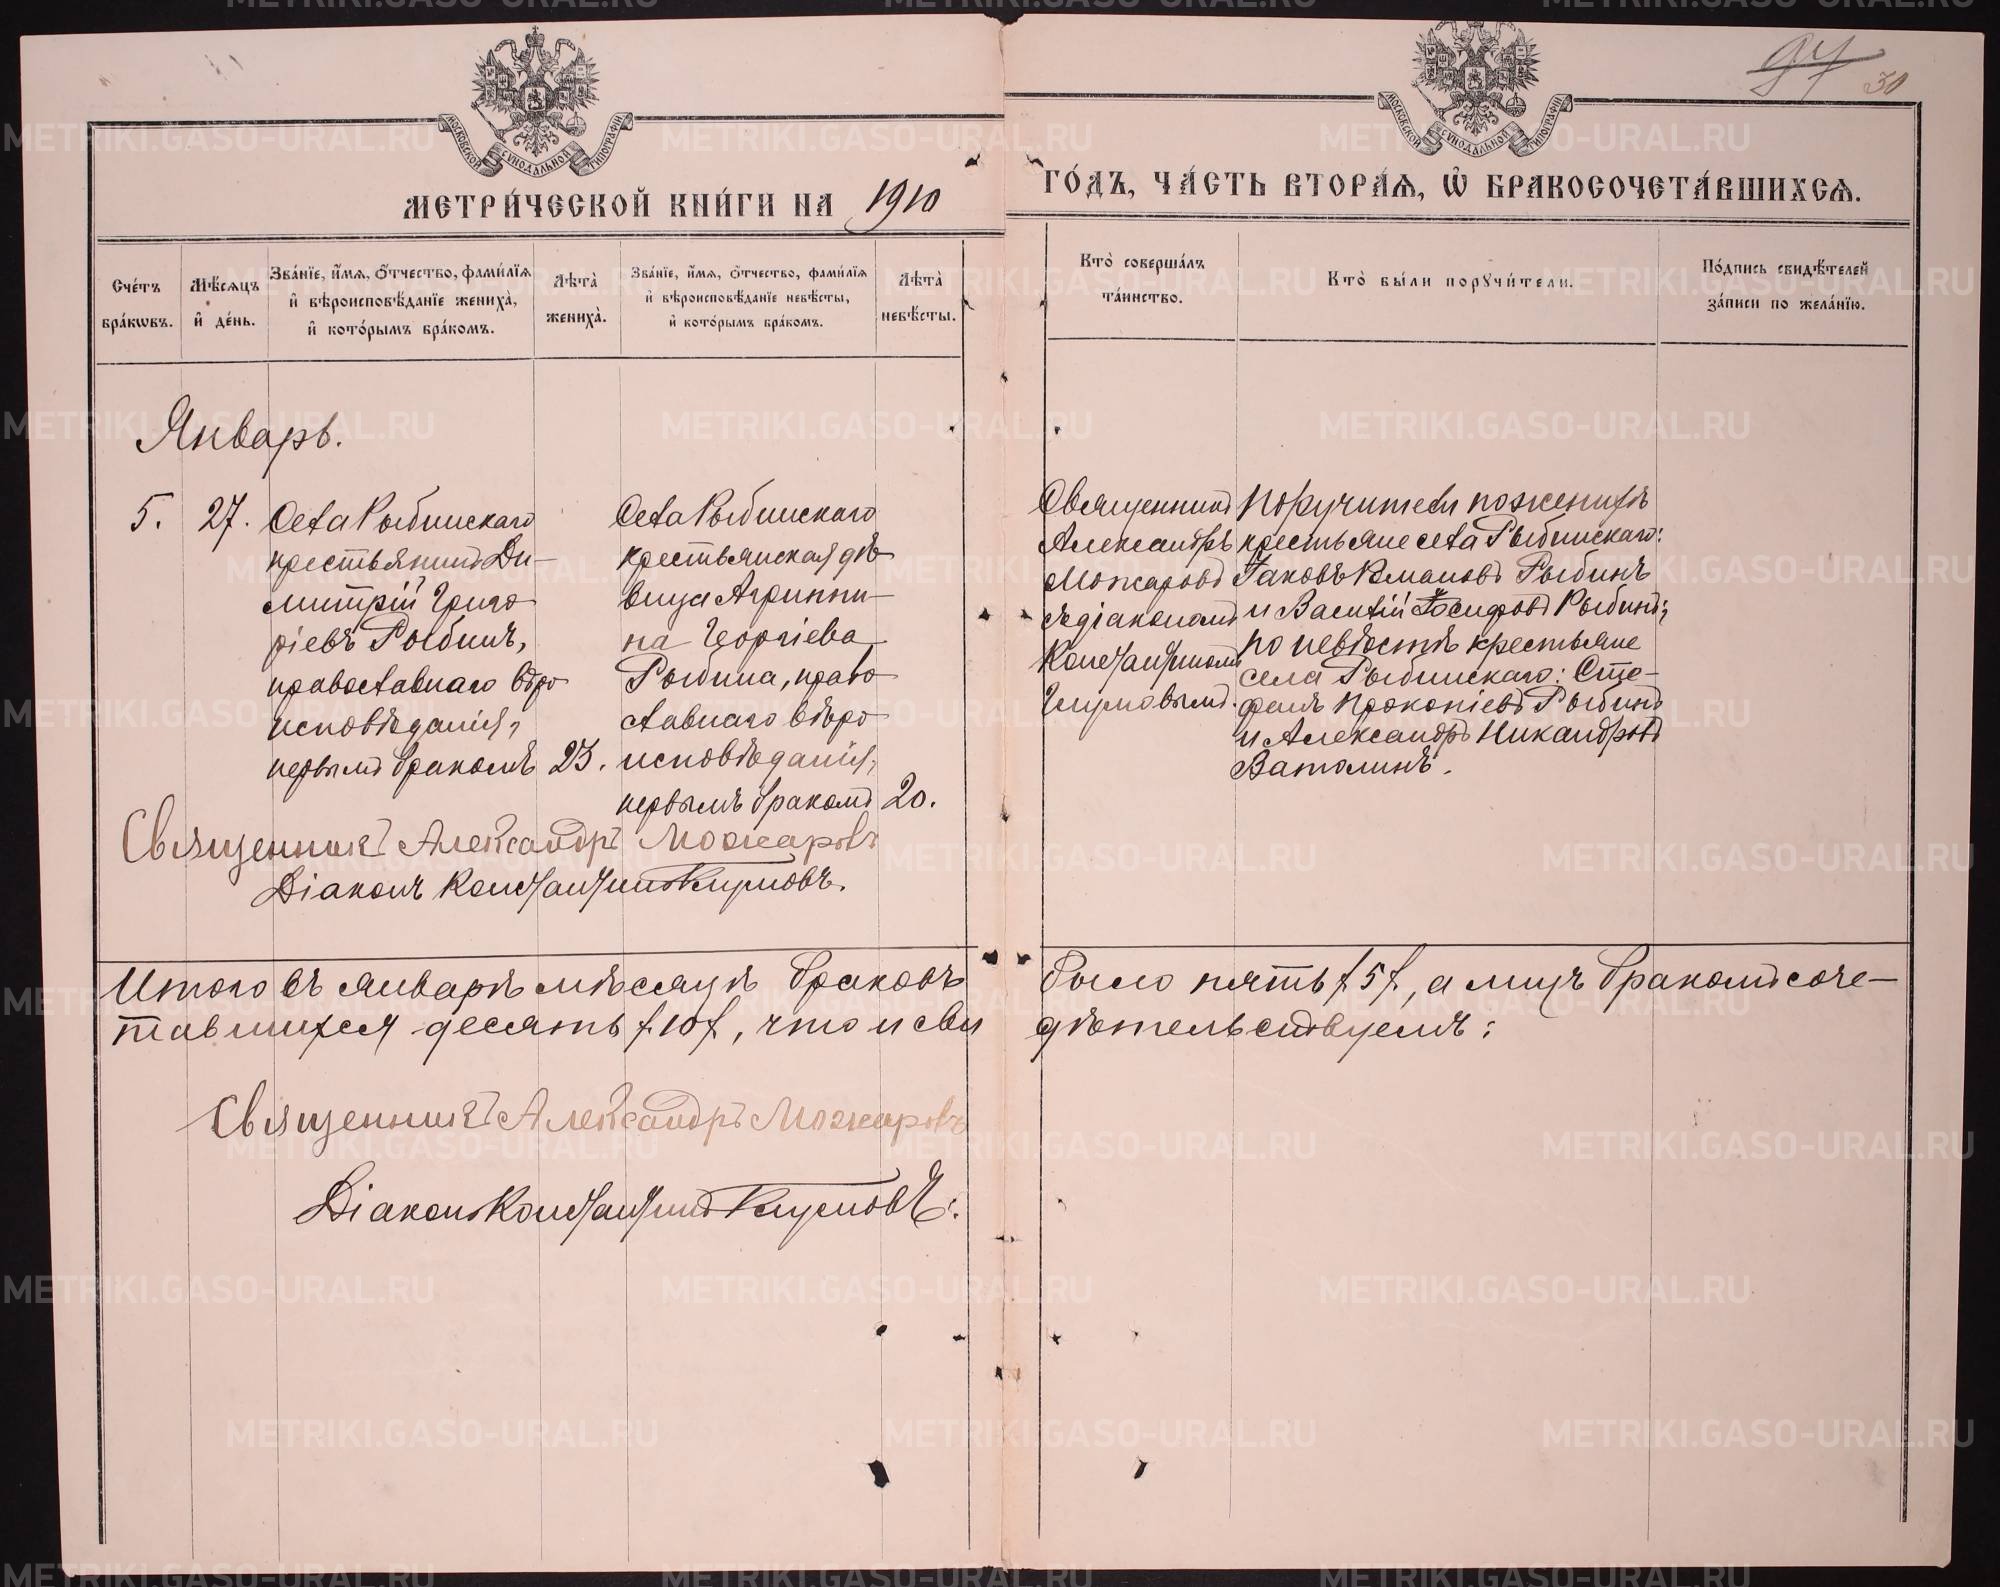 94
30
МОСКОВСКОЙ СѴНОДАЛЬНОЙ ТИПОГРАФІИ
МОСКОВСКОЙ СѴНОДАЛЬНОЙ ТИПОГРАФІИ
МЕТРИ́ЧЕСКОЙ КНИ́ГИ НА 1910 ГО́ДЪ, ЧА́СТЬ ВТОРА́Ѧ, Ѡ҆ БРАКОСОЧЕТА́ВШИХСѦ.
Сче́тъ бра́кѡвъ.
Мѣ́сѧцъ и҆ де́нь.
Зва́нїе, и҆́мѧ, ѻ҆́тчество, фами́лїѧ и҆ вѣроисповѣ́данїе жениха̀, и҆ кото́рымъ бра́комъ.
Лѣта̀ жениха̀.
Зва́нїе, и҆́мѧ, ѻ҆́тчество, фами́лїѧ и҆ вѣроисповѣ́данїе невѣ́сты, и҆ кото́рымъ бра́комъ.
Лѣта̀ невѣ́сты.
Кто̀ соверша́лъ та́инство.
Кто̀ бы́ли порꙋчи́тели.
По́дпись свидѣ́телей за́писи по жела́нїю.
Январь.
5.
27.
Села Рыбинскаго
крестьянинъ Ди-
митрій Григо
ріевъ Рыбинъ,
православнаго вѣро
исповѣданія,
первымъ бракомъ
23.
Села Рыбинскаго
крестьянская дѣ
вица Агриппи-
на Георгіева
Рыбина, право
славнаго вѣро
исповѣданія,
первымъ бракомъ
20.
Священникъ
Александръ
Можаровъ
съ діакономъ
Константиномъ
Поручители по женихѣ
крестьяне села Рыбинскаго:
Іаковъ Рыбинъ
и Василій Іосифовъ Рыбинъ;
по невѣстѣ крестьяне
села Рыбинскаго: Сте-
фанъ Прокопіевъ Рыбинъ
и Александръ Никандровъ
Ватолинъ.
Священникъ Александръ Можаровъ
Діаконъ Константинъ
Итого въ январѣ мѣсяцѣ браковъ было пять /5/, а лицъ бракомъ соче-
тавшихся десять /10/, что и сви дѣтельствуемъ:
Священникъ Александръ Можаровъ
Діаконъ Константинъ
METRIKI.GASO-URAL.RU